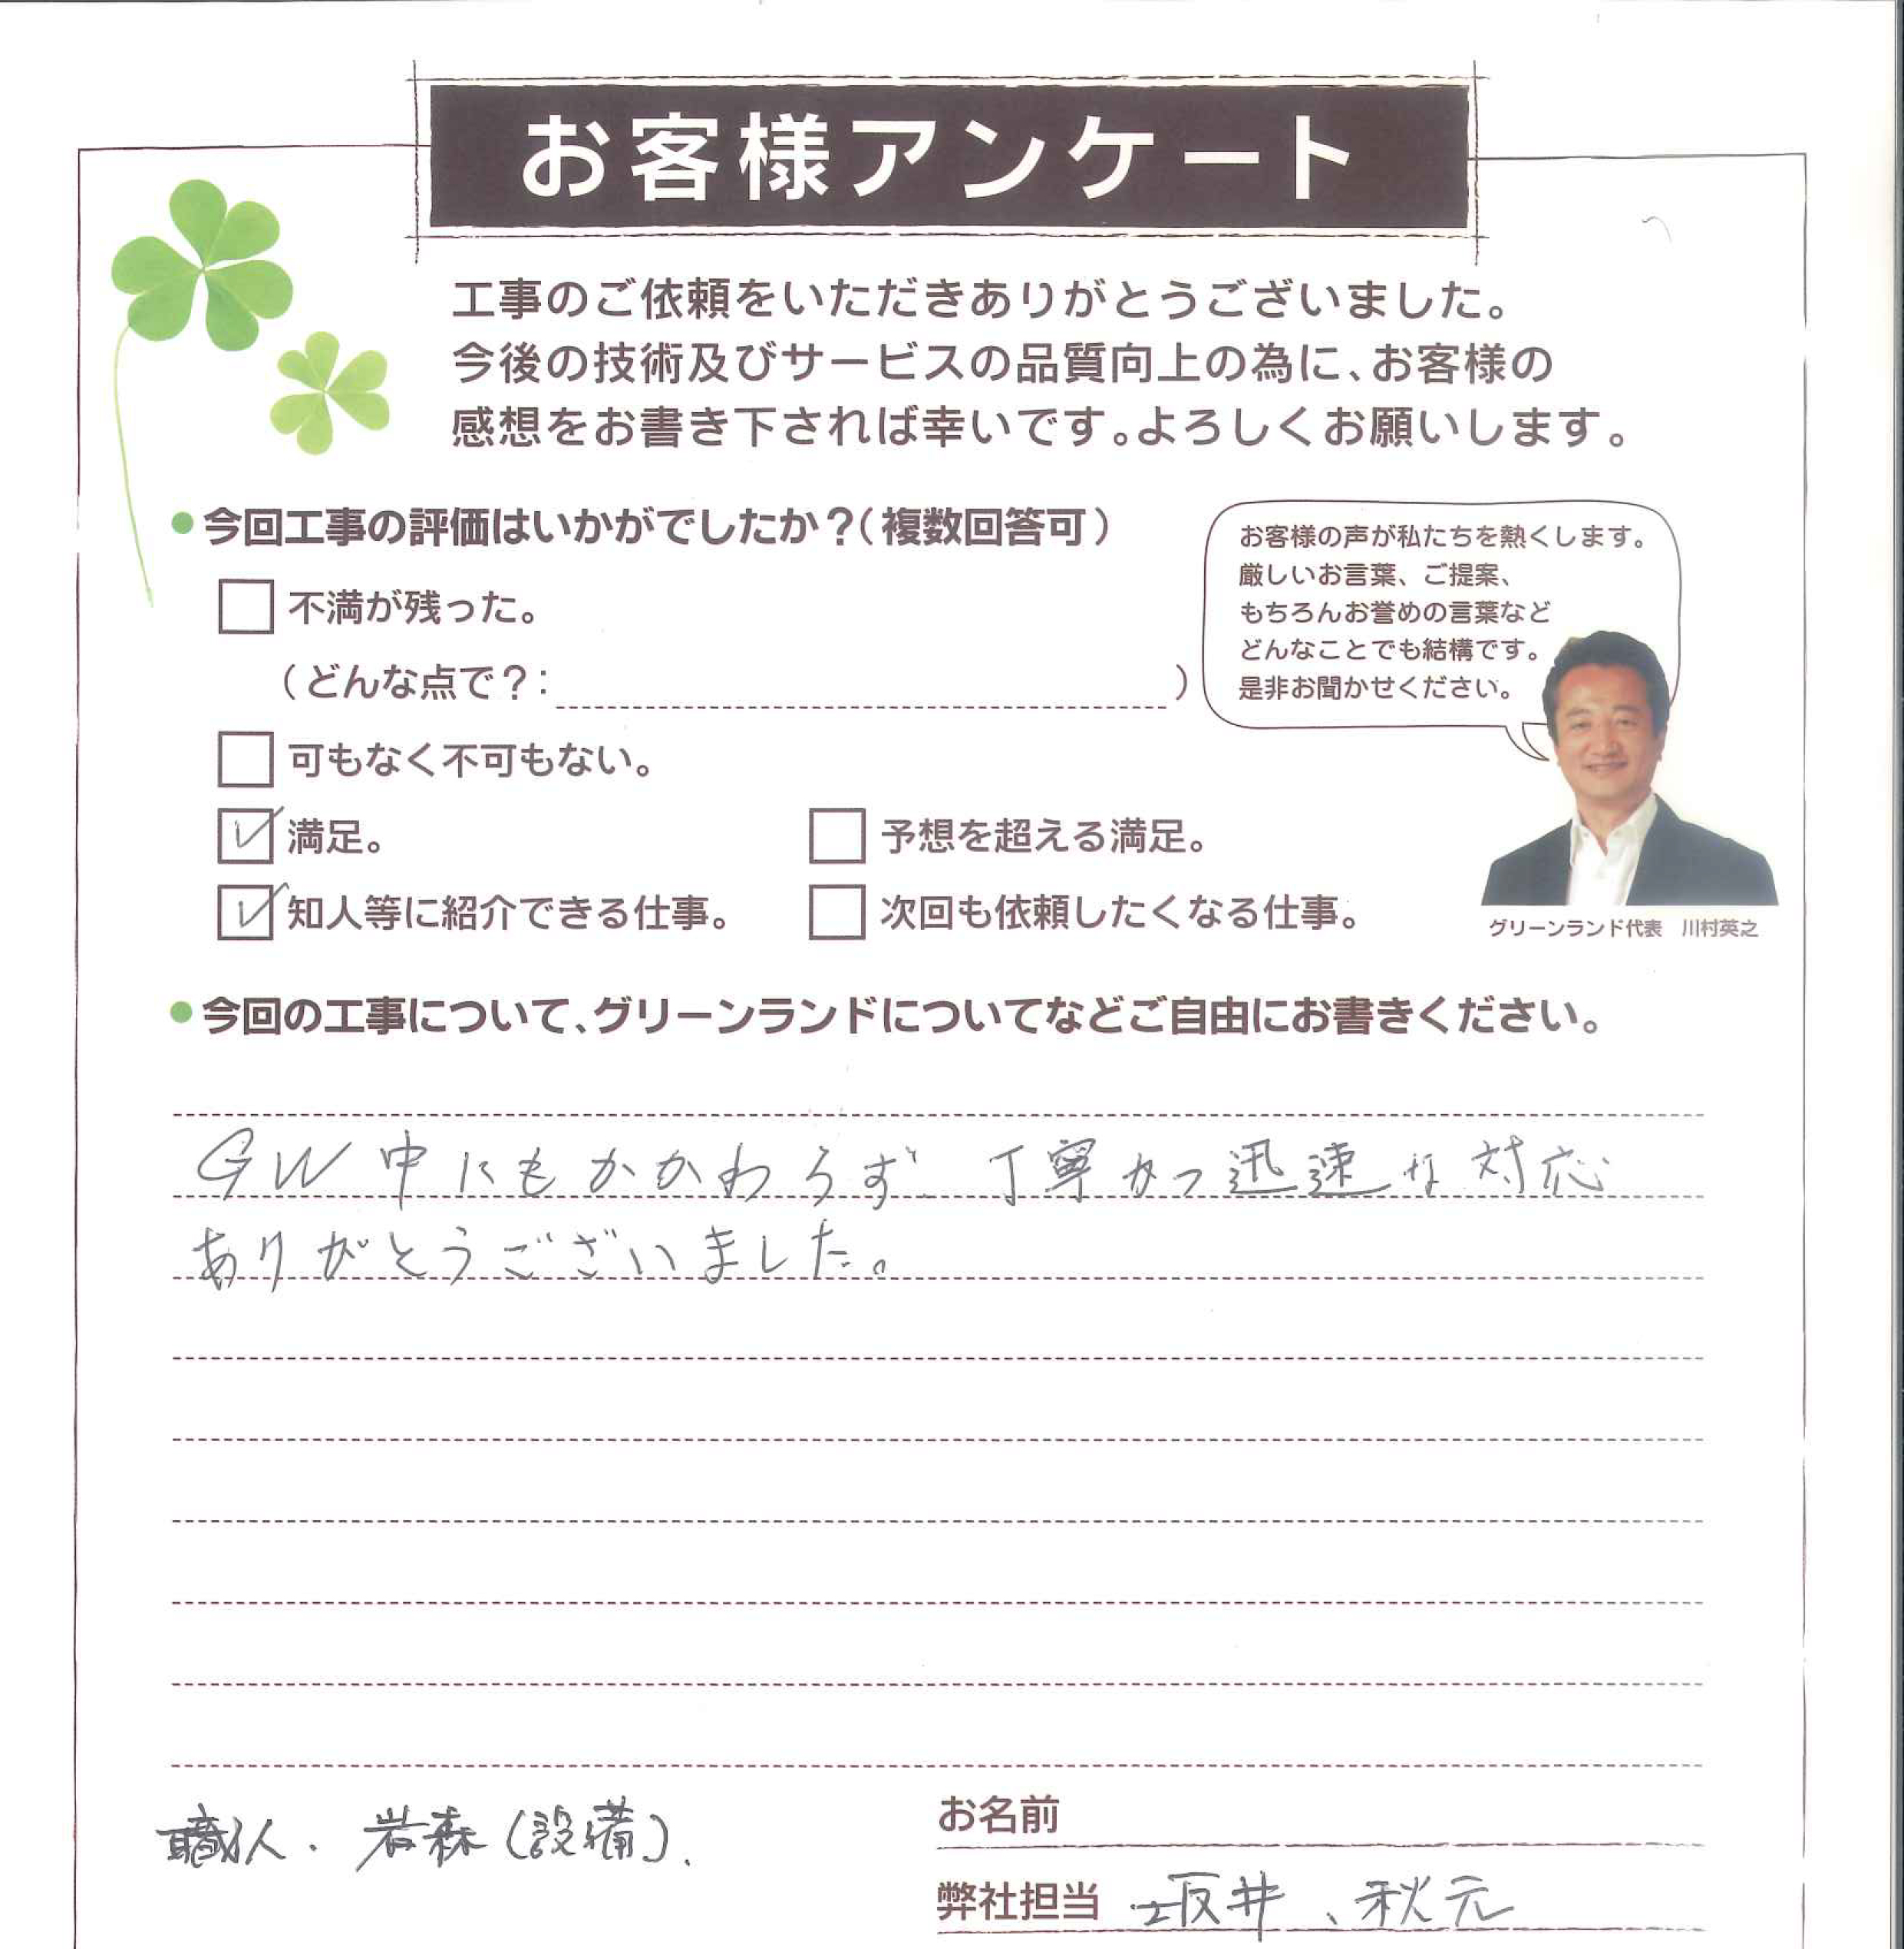 お客様アンケート
工事のご依頼をいただきありがとうございました。
今後の技術及びサービスの品質向上の為に、お客様の
感想をお書き下されば幸いです。よろしくお願いします。
●今回工事の評価はいかがでしたか？（複数回答可）
不満が残った。
（どんな点で？：　）
可もなく不可もない。
満足。　予想を超える満足。
知人等に紹介できる仕事。　次回も依頼したくなる仕事。
お客様の声が私たちを熱くします。
厳しいお言葉、ご提案、
もちろんお誉めの言葉など
どんなことでも結構です。
是非お聞かせください。
グリーンランド代表　川村英之
●今回の工事について、グリーンランドについてなどご自由にお書きください。
GW中にもかかわらず、丁寧かつ迅速な対応
ありがとうございました。
職人．岩森（設備）．
お名前
弊社担当　坂井、秋元